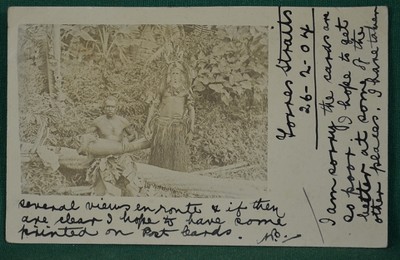 Torres Straits
26-2-04
I am sorry the cards are
so poor. I hope to get
better at some of the
other places. I have taken
several views en route & if they
are clear I hope to have some
printed on Post Cards.